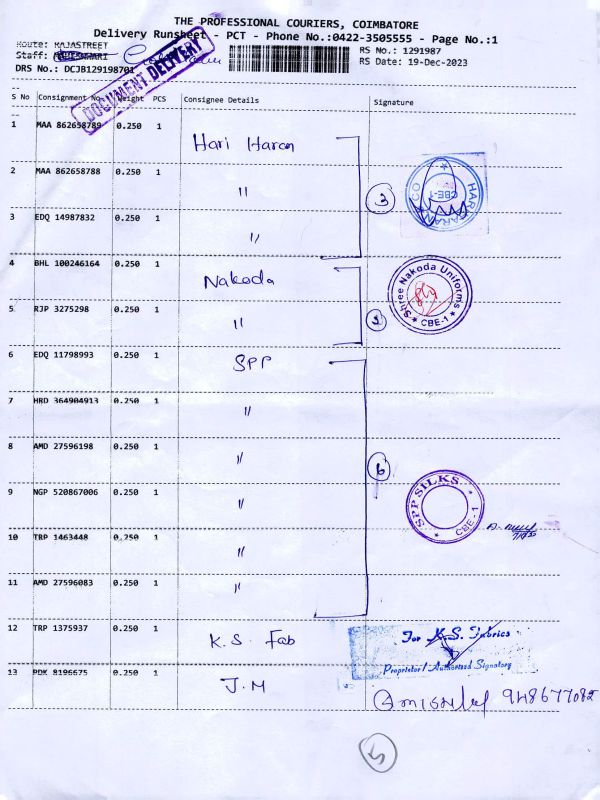 THE PROFESSIONAL COURIERS, COIMBATORE
Delivery Runsheet - PCT - Phone No.:0422-3505555 - Page No.:1
Route: RAJASTREET
RS No.: 1291987
Staff:
RS Date: 19-Dec-2023
DRS No.: DCJB129198701
DOCUMENT DELIVERY
S No Consignment No. Weight PCS Consignee Details Signature
1 MAA 862658789 0.250 1 Hari Haran
2 MAA 862658788 0.250 1 "
3 EDQ 14987832 0.250 1 "
3
HARI HARAN CO
CBE-1
4 BHL 100246164 0.250 1 Nakoda
5 RJP 3275298 0.250 1 "
Shree Nakoda Uniforms
CBE-1
6 EDQ 11798993 0.250 1 SPP
7 HBD 364904913 0.250 1 "
8 AMD 27596198 0.250 1 "
9 NGP 520867006 0.250 1 "
10 TRP 1463448 0.250 1 "
11 AMD 27596083 0.250 1 "
6
SPP SILKS
CBE-1
12 TRP 1375937 0.250 1 K.S. Fab
For K.S. Fabrics
Proprietor / Authorized Signatory
13 PDK 8196675 0.250 1 J.M
5